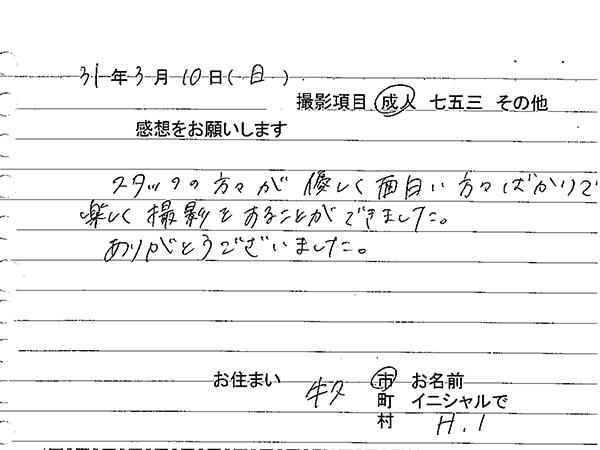 31年3月10日(日)
撮影項目 成人 七五三 その他
感想をお願いします
スタッフの方々が優しく面白い方々ばかりで
楽しく撮影をすることができました。
ありがとうございました。
お住まい 牛久 市 お名前
町 イニシャルで
村 H.I